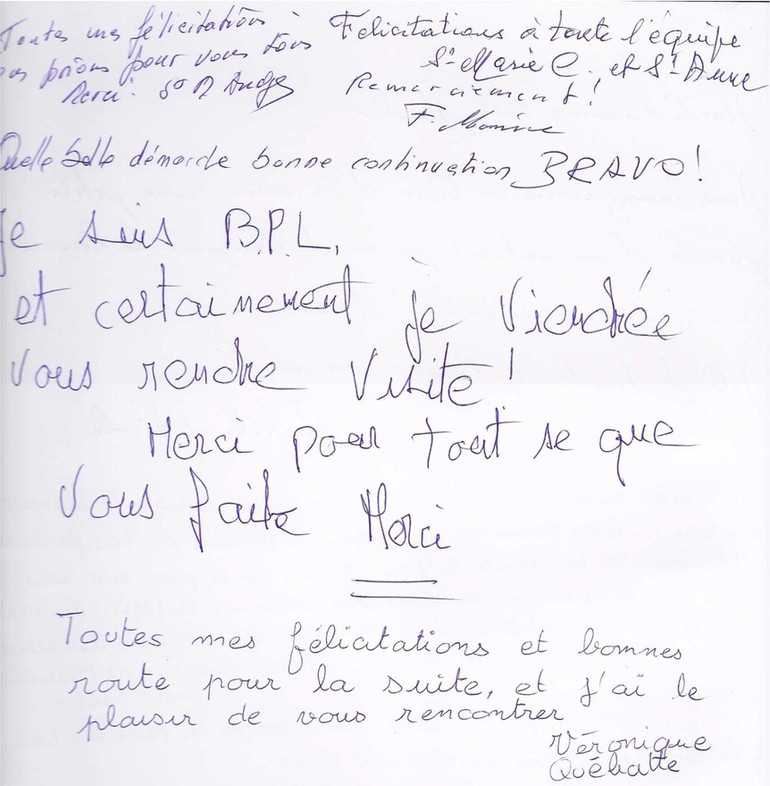 Toutes mes félicitations
nous prions pour vous tous
Merci. Sr M Andge
Félicitations à toute l'équipe
St Marie C. et St Anne
Remerciement !
F. Monine
Quelle belle démarche bonne continuation BRAVO !
Je suis B.P.L,
et certainement je Viendrée
Vous rendre Visite !
Merci pour tout se que
Vous faite Merci
Toutes mes félicitations et bonnes
route pour la suite, et j'ai le
plaisir de vous rencontrer
Véronique
Québatte